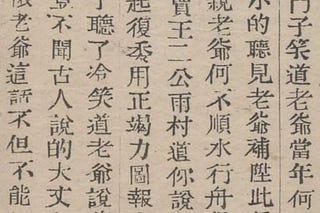 門子笑道老爺當年何
小的聽見老爺補陞此
親老爺何不順水行舟
賈王二公雨村道你說
起復委用正竭力圖報
子聽了冷笑道老爺說
豈不聞古人說的大丈
依老爺這話不但不能